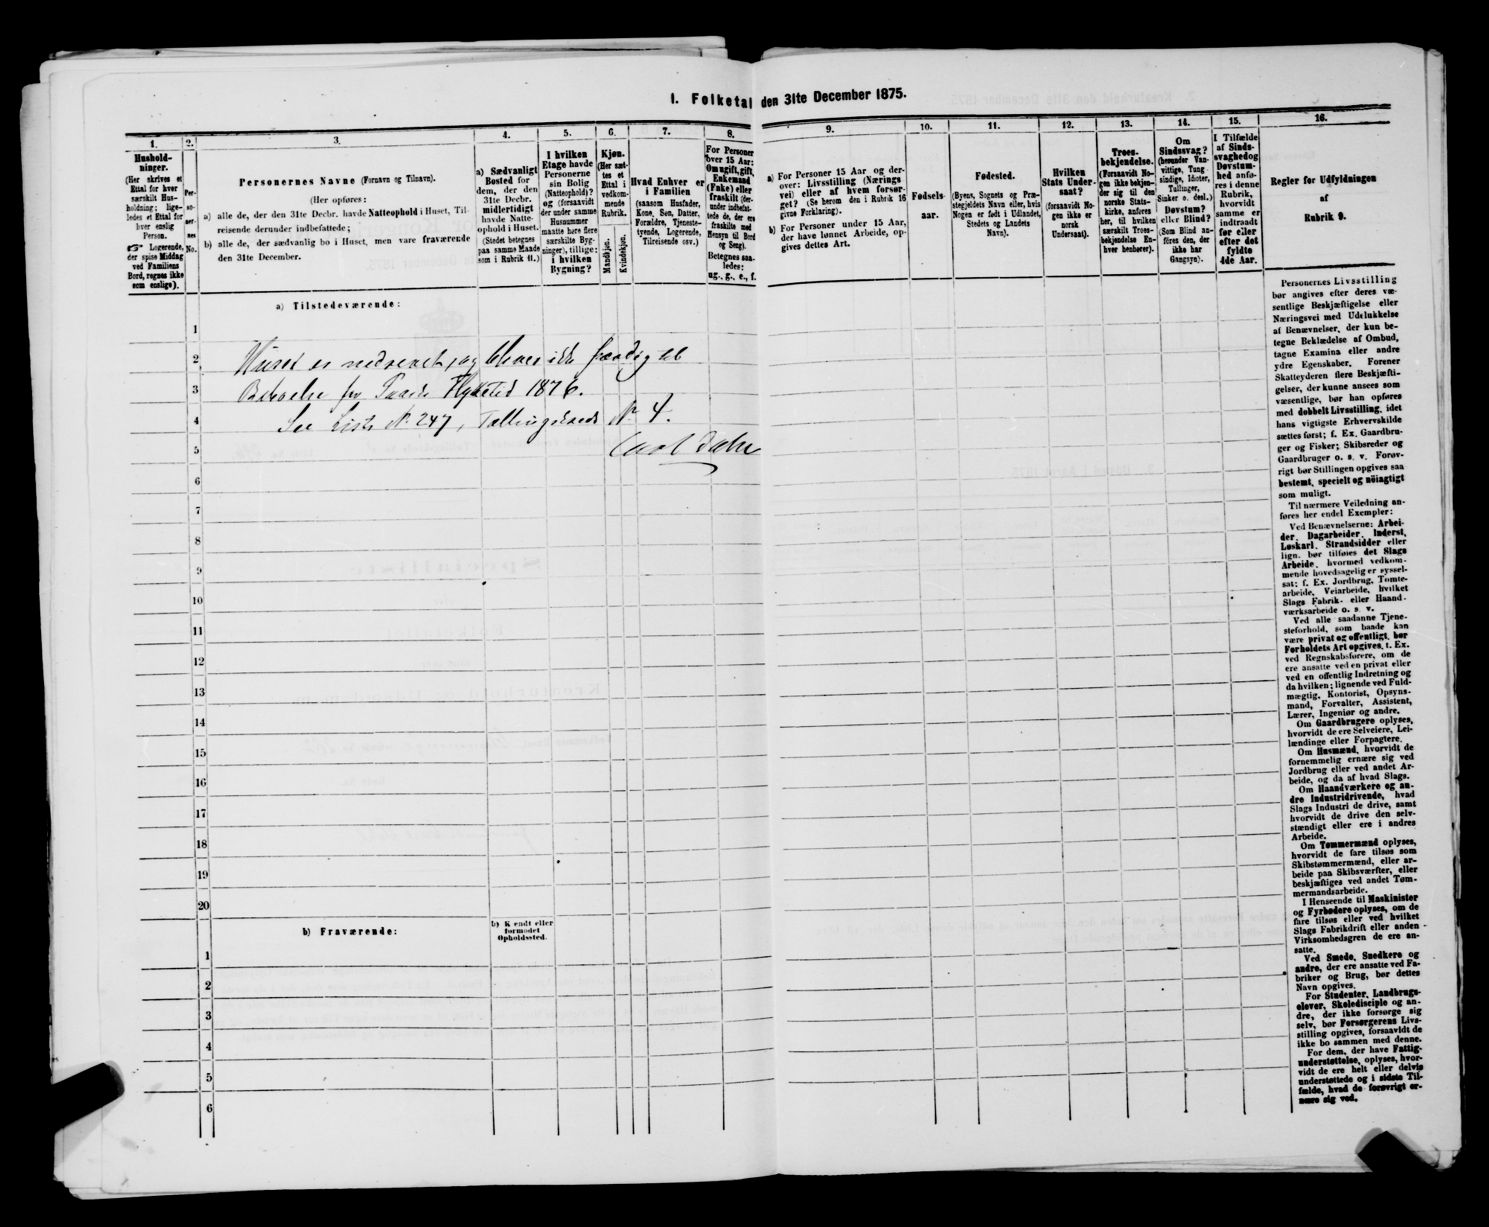 1. Folketal den 31te December 1875.
1.
Hushold-
ninger.
(Her skrives et
Ettal for hver
særskilt Hus-
holdning; lige-
ledes et Ettal for
hver enslig
Person.
☞ Logerende,
der spise Middag
ved Familiens
Bord, regnes ikke
som enslige).
2.
Per-
so-
ner-
nes
No.
3.
Personernes Navne (Fornavn og Tilnavn).
(Her opføres:
a) alle de, der den 31te Decbr. havde Natteophold i Huset, Til-
reisende derunder indbefattede;
b) alle de, der sædvanlig bo i Huset, men vare fraværende
den 31te December.
4.
a) Sædvanligt
Bosted for
dem, der den
31te Decbr.
midlertidigt
havde Natte-
ophold i Huset.
(Stedet betegnes
paa samme Maade
som i Rubrik 11.)
5.
I hvilken
Etage havde
Personerne
sin Bolig
(Natteophold)?
og (forsaavidt
der under samme
Husnummer
maatte høre flere
særskilte Byg-
ninger), tillige:
i hvilken
Bygning?
6.
Kjøn.
(Her sæt-
tes et
Ettal i
vedkom-
mende
Rubrik.
Mandkjøn.
Kvindekjøn.
7.
Hvad Enhver er
i Familien
(saasom Husfader,
Kone, Søn, Datter,
Forældre, Tjeneste-
tyende, Logerende,
Tilreisende osv.)
8.
For Personer
over 15 Aar:
Om ugift, gift,
Enkemand
(Enke) eller
fraskilt (der-
under indbefat-
tede de, der ere
fraskilte med
Hensyn til Bord
og Seng).
Betegnes saa-
ledes:
ug., g., e., f.
9.
a) For Personer 15 Aar og der-
over: Livsstilling (Nærings
vei) eller af hvem forsør-
get? (Se herom den i Rubrik 16
givne Forklaring).
b) For Personer under 15 Aar,
der have lønnet Arbeide, op-
gives dettes Art.
10.
Fødsels-
aar.
11.
Fødested.
(Byens, Sognets og Præ-
stegjeldets Navn eller, hvis
Nogen er født i Udlandet,
Stedets og Landets
Navn).
12.
Hvilken
Stats Under-
saat?
(forsaavidt No-
gen ikke er
norsk
Undersaat).
13.
Troes-
bekjendelse.
(Forsaavidt No-
gen ikke bekjen-
der sig til den
norske Stats-
kirke, anføres
her, til hvilken
særskilt Troes-
bekjendelse En-
hver henhører).
14.
Om
Sindssvag?
(herunder Van-
vittige, Tung
sindige, Idioter,
Tullinger,
Sinker o. desl.)
Døvstum?
eller Blind?
(Som Blind an-
føres den, der
ikke har
Gangsyn).
15.
I Tilfælde
af Sinds-
svaghed og
Døvstum-
hed anfø-
res i denne
Rubrik,
hvorvidt
samme er
indtraadt
før eller
efter det
fyldte
4de Aar.
16.
Regler for Udfyldningen
af
Rubrik 9.
a) Tilstedeværende:
1
2 Huset er nedrevet, og bliver ikke færdig til
3 Beboelse før Flyttetid 1876.
4 See Liste No 247, Tællingskreds No 4.
5 Carl
6
7
8
9
10
11
12
13
14
15
16
17
18
19
20
b) Fraværende:
b) Kjendt eller
formodet
Opholdssted.
1
2
3
4
5
6
Personernes Livsstilling
bør angives efter deres væ-
sentlige Beskjæftigelse eller
Næringsvei med Udelukkelse
af Benævnelser, der kun be-
tegne Beklædelse af Ombud,
tagne Examina eller andre
ydre Egenskaber. Forener
Skatteyderen flere Beskjæfti-
gelser, der kunne ansees som
væsentlige, bør han opføres
med dobbelt Livsstilling, idet
hans vigtigste Erhvervskilde
sættes først; f. Ex. Gaardbru-
ger og Fisker; Skibsreder og
Gaardbruger o. s. v. Forøv-
rigt bør Stillingen opgives saa
bestemt, specielt og nöiagtigt
som muligt.
Til nærmere Veiledning an-
føres her endel Exempler:
Ved Benævnelserne: Arbei-
der, Dagarbeider, Inderst,
Løskarl, Strandsidder eller
lign. bør tilføies det Slags
Arbeide, hvormed vedkom-
mende hovedsagelig er syssel-
sat; f. Ex. Jordbrug, Tomte-
arbeide, Veiarbeide, hvilket
Slags Fabrik- eller Haand-
værksarbeide o. s. v.
Ved alle saadanne Tjene-
steforhold, som baade kan
være privat og offentligt, bør
Forholdets Art opgives, f. Ex.
ved Regnskabsførere, om de
ere ansatte ved en privat eller
ved en offentlig Indretning og
da hvilken; lignende ved Fuld-
mægtig, Kontorist, Opsyns-
mand, Forvalter, Assistent,
Lærer, Ingeniør og andre.
Om Gaardbrugere oplyses,
hvorvidt de ere Selveiere, Lei-
lændinge eller Forpagtere.
Om Husmænd, hvorvidt de
fornemmelig ernære sig ved
Jordbrug eller ved andet Ar-
beide, og da af hvad Slags.
Om Haandværkere og an-
dre Industridrivende, hvad
Slags Industri de drive, samt
hvorvidt de drive den selv-
stændigt eller ere i andres
Arbeide.
Om Tømmermænd oplyses,
hvorvidt de fare tilsøs som
Skibstømmermænd, eller ar-
beide paa Skibsværfter, eller
beskjæftiges ved andet Tøm-
mermandsarbeide.
I Henseende til Maskinister
og Fyrbødere oplyses, om de
fare tilsøs eller ved hvilket
Slags Fabrikdrift eller anden
Virksomhedsgren de ere an-
satte.
Ved Smede, Snedkere og
andre, der ere ansatte ved Fa-
briker og Brug, bør dettes
Navn opgives.
For Studenter, Landbrugs-
elever, Skoledisciple og an-
dre, der ikke forsørge sig
selv, bør Forsørgerens Livs-
stilling opgives, forsaavidt de
ikke bo sammen med denne.
For dem, der have Fattig-
understøttelse, oplyses, hvor-
vidt de ere helt eller delvis
understøttede og i sidste Til-
fælde, hvad de forøvrigt er-
nære sig ved.